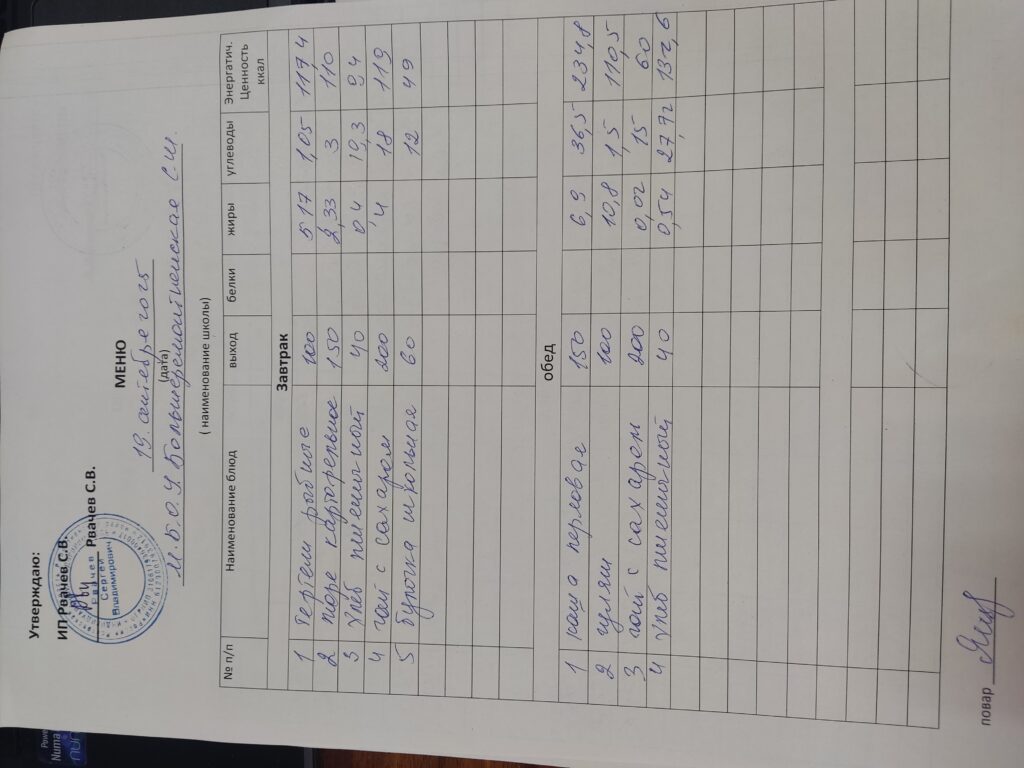 Утверждаю:
ИП Рвачев С.В.
Рвачев С.В.
Рвачев
Сергей
Владимирович
МЕНЮ
19 сентября 2025
(дата)
М.Б.О.У Большеремонтненская С.Ш.
( наименование школы)
№ п/п Наименование блюд выход белки жиры углеводы Энергатич. Ценность ккал
Завтрак
1 тефтели рыбные 100 5,17 1,05 117,4
2 пюре картофельное 150 2,33 3 110
3 хлеб пшеничный 40 0,4 19,3 94
4 чай с сахаром 200 ,4 18 119
5 булочка школьная 60 12 49
обед
1 каша перловая 150 6,9 36,5 234,8
2 гуляш 100 10,8 1,5 110,5
3 чай с сахаром 200 0,02 15 60
4 хлеб пшеничный 40 0,54 27,72 132,6
повар
Powe
Numa